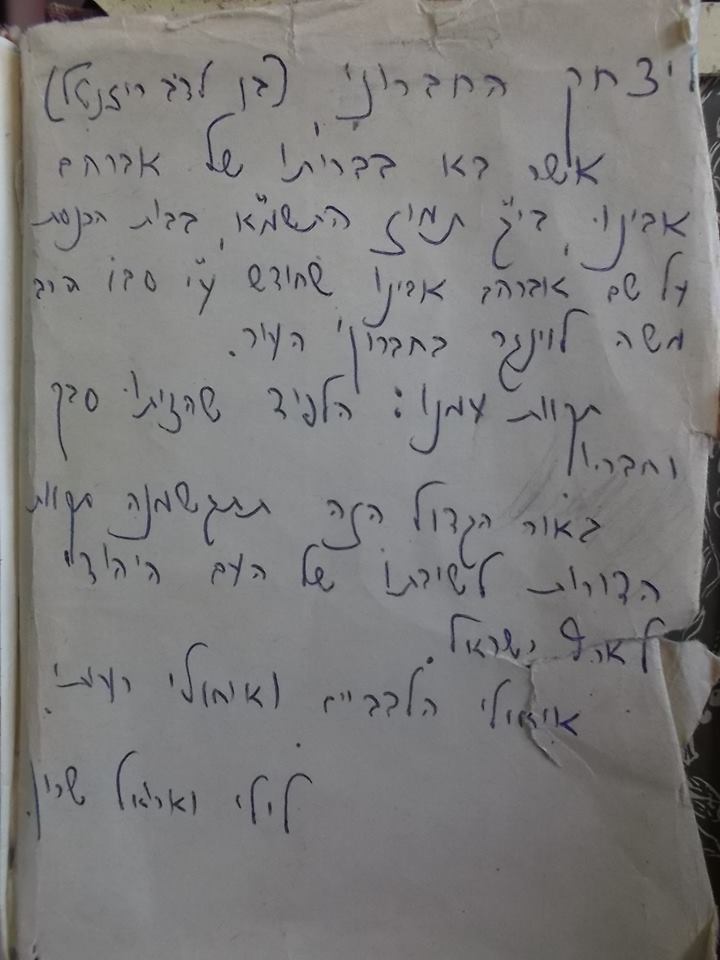 יצחק החברוני (בן לדב ריזנטל)
אשר בא בבריתו של אברהם
אבינו, בי"ג תמוז התשמ"א, בבית הכנסת
על שם אברהם אבינו שחודש ע"י סבו הרב
משה לוינגר בחברון העיר.
תקוות עמנו: הלפיד שהצית סבך
וחבריו
באור הגדול הזה תתגשמנה תקוות
הדורות לשיבתו של העם היהודי
לארץ ישראל.
איחולי הלבביים ואיחולי רעיתי.
לילי ואריאל שרון